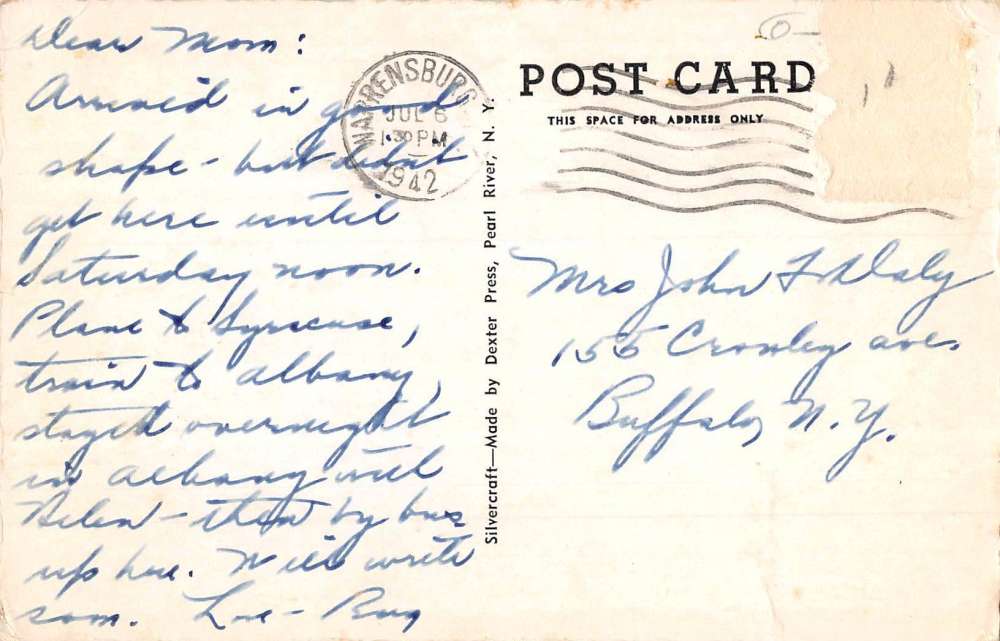 Dear Mom:
Arrived in good
shape - but didnt
get here until
Saturday noon.
Plane to Syracuse,
train to Albany,
stayed overnight
in Albany with
Helen - then by bus
up here. Will write
soon. Love -
WARRENSBURG
JUL 6
1:30 PM
1942
Silvercraft—Made by Dexter Press, Pearl River, N. Y.
POST CARD
THIS SPACE FOR ADDRESS ONLY
Mrs John F Daly
155 Crowley ave.
Buffalo, N. Y.